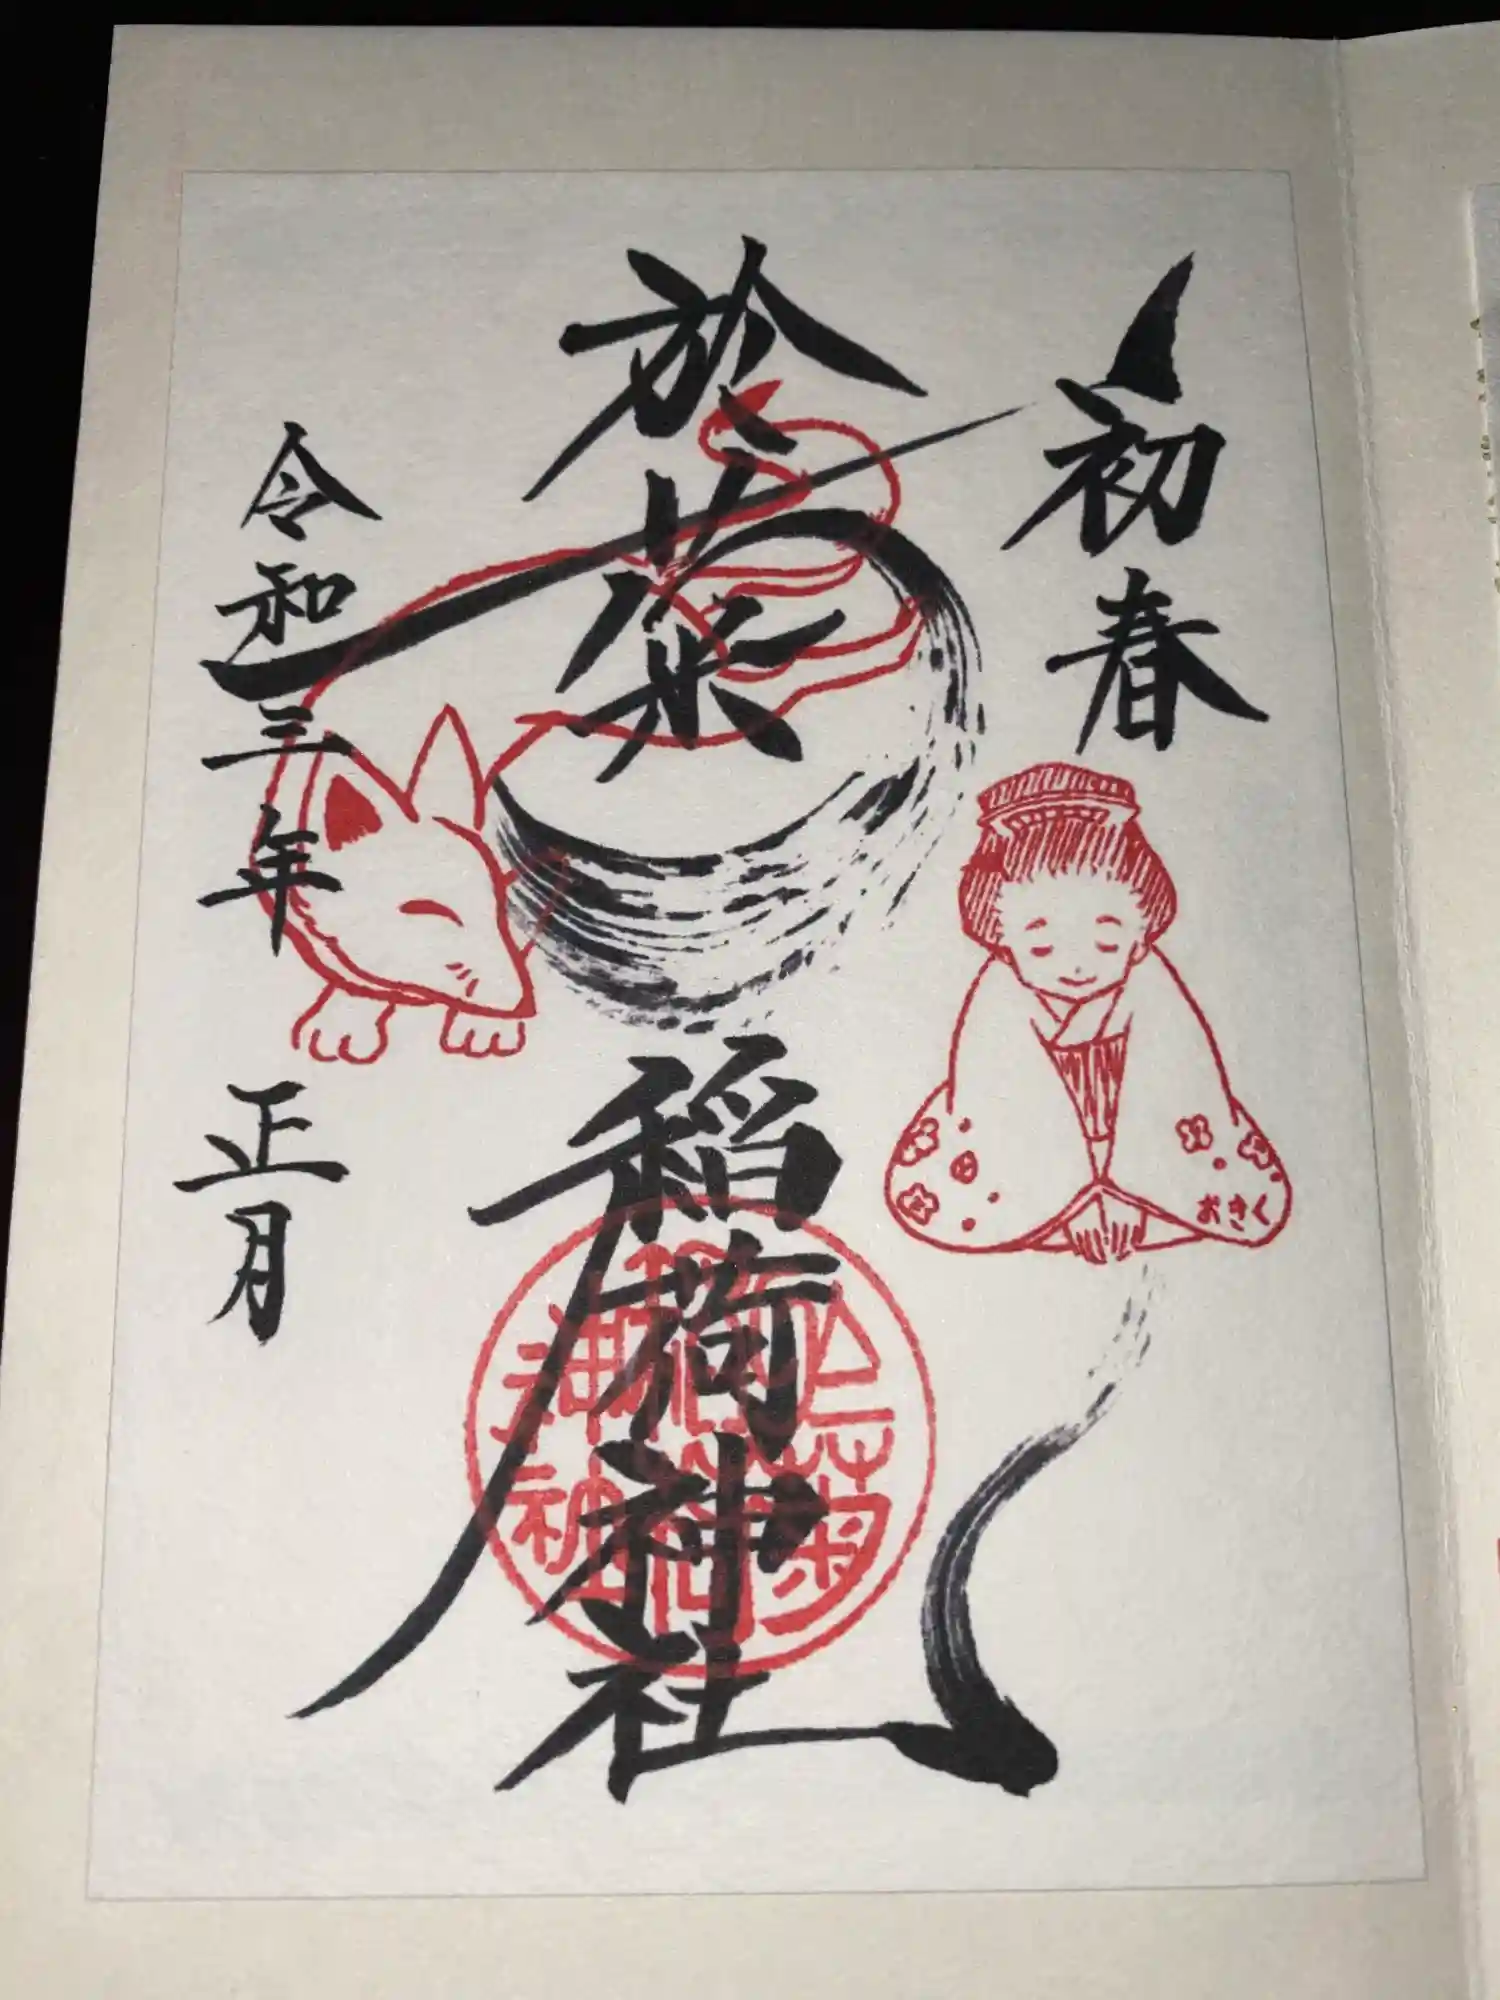 初春
於菊稲荷神社
令和三年 正月
おきく
於菊稲荷神社